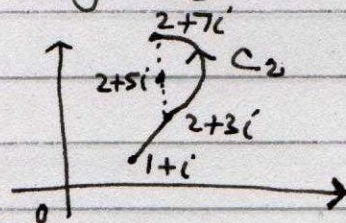 2+7i
C₂
2+5i
2+3i
1+i
0